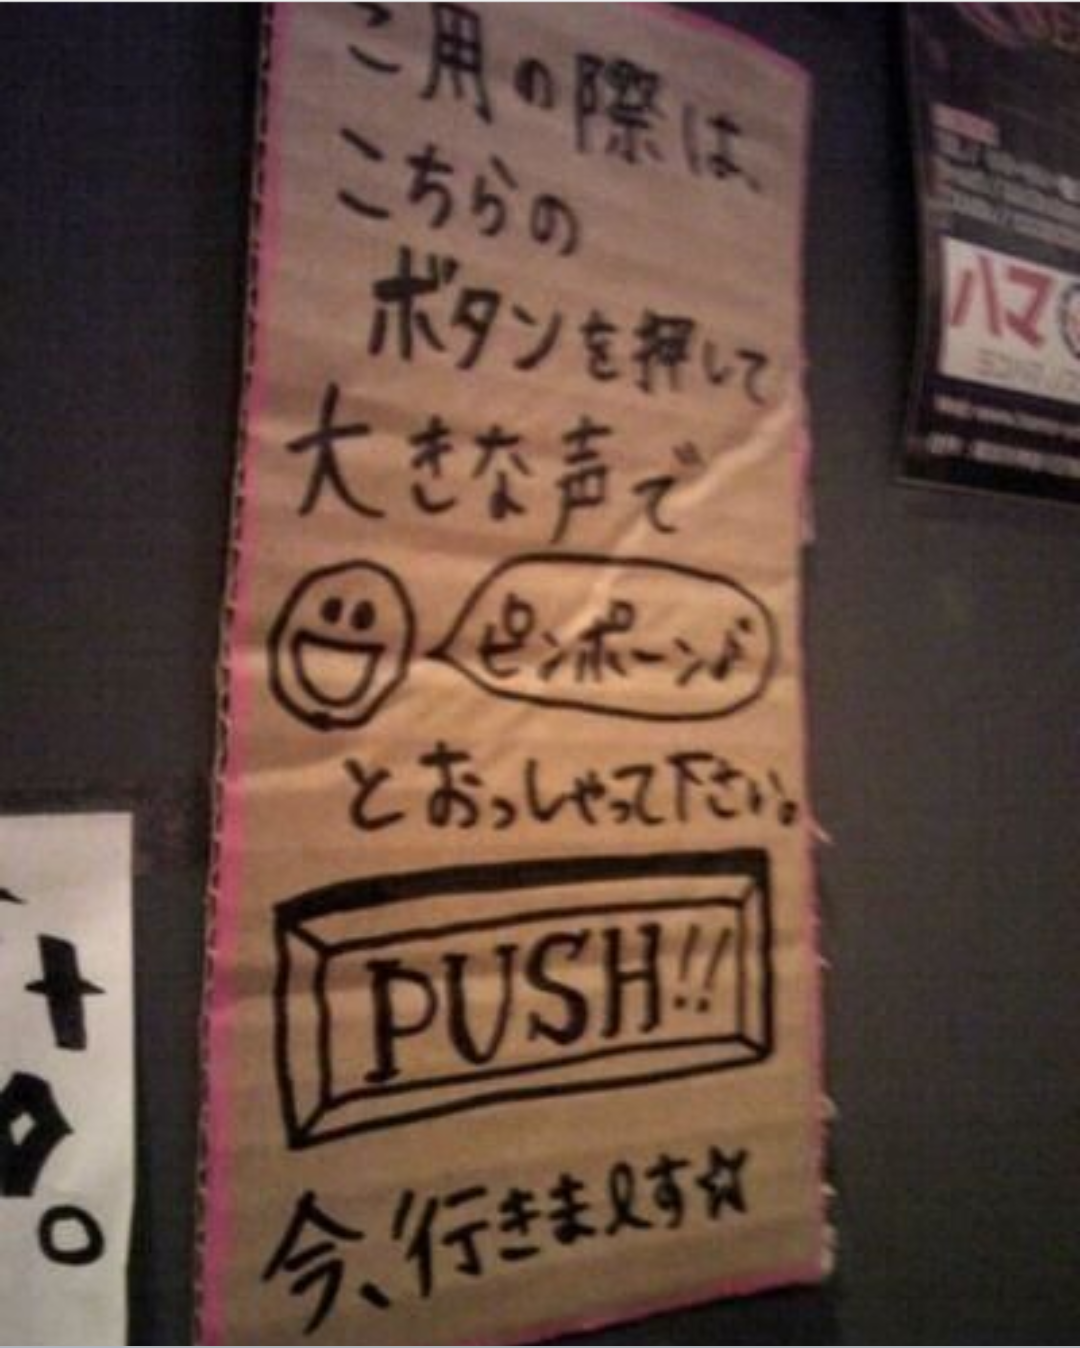 ご用の際は、
こちらの
ボタンを押して
大きな声で
ピンポーン♪
とおっしゃって下さい。
PUSH!!
今、行きまーす☆
ハマ